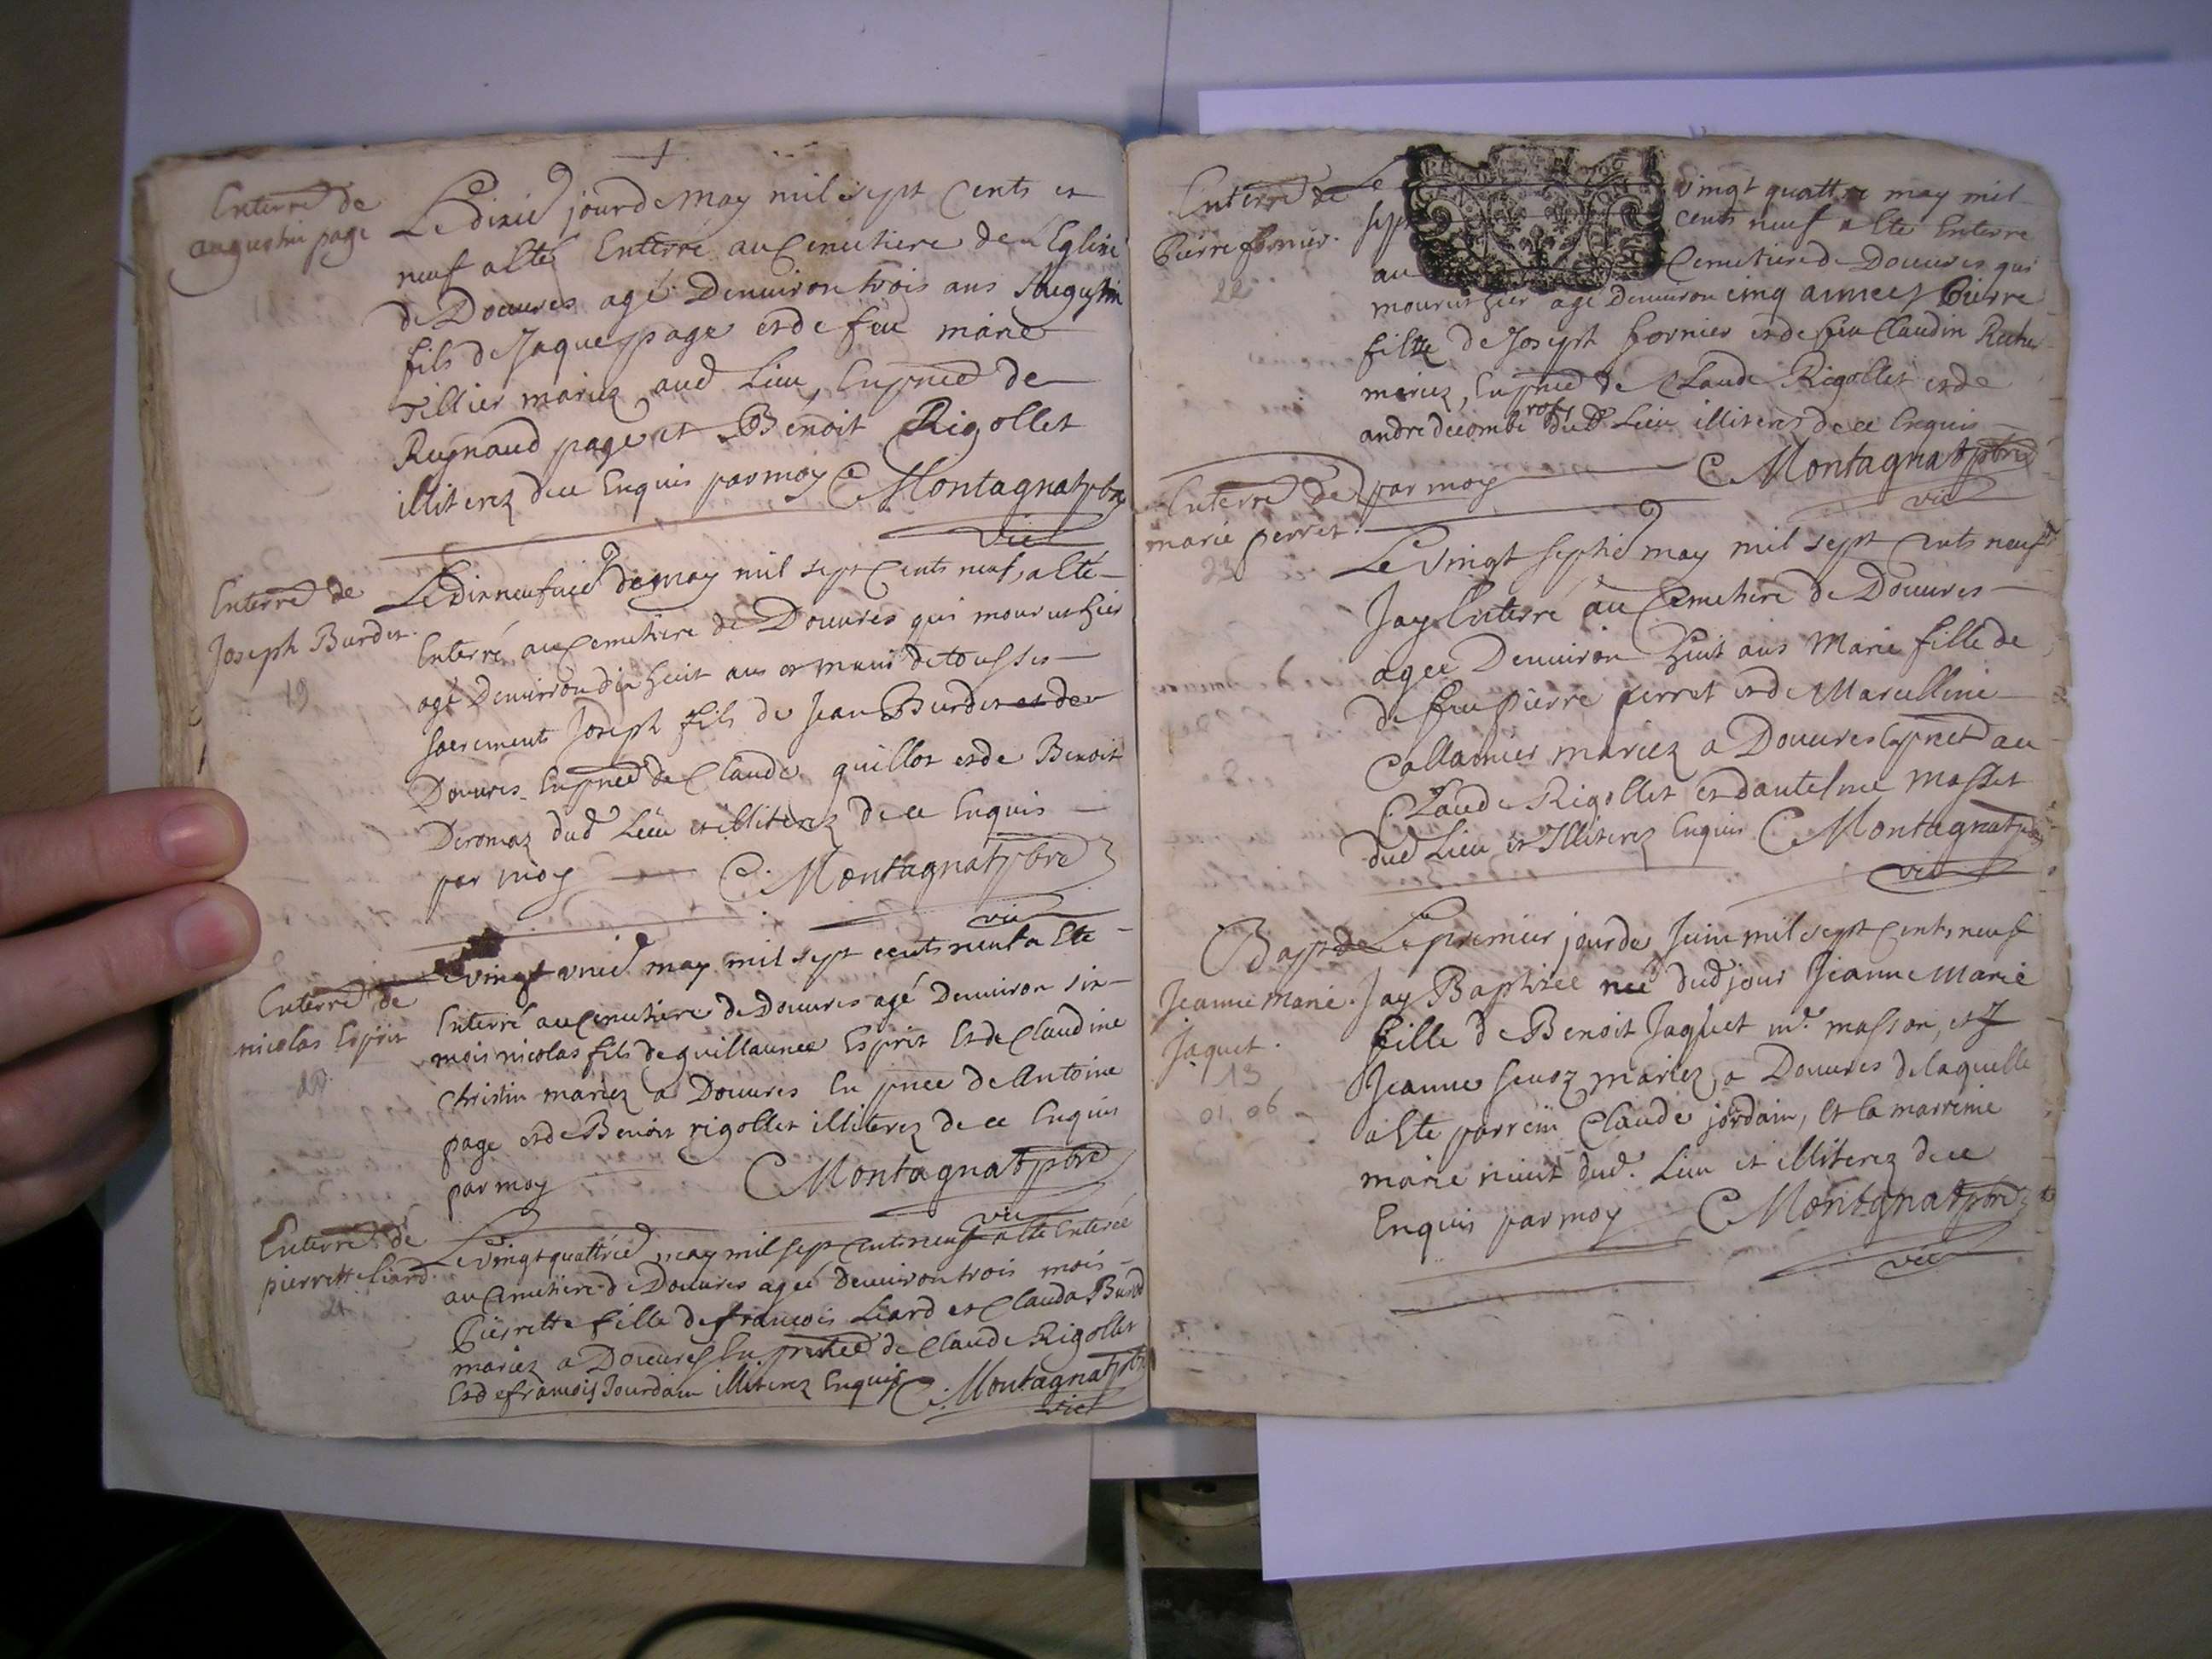 Enterre de
augustin page
Le dixie jour de may mil sept Cents et
neuf a esté Enterré au Cemetiere de l'Eglise
de Douures agé Denuiron trois ans Augustin
fils de Jaques page et de feu marie
Tillier mariez aud Lieu, En pnce de
Reynaud page et Benoit Rigollet
illiterez de ce Enquis par moy C Montagnat ptre
vic
Enterre de
Joseph Burdet.
19
Le Dix neufuie de may mil sept Cents neuf a esté
Enterré au Cemetiere de Douures qui mourut hier
agé Denuiron dix huit ans et muni de tous ses
sacrements Joseph fils de Jean Burdet et de
Douures En pnce de Claude guillot et de Benoit
Deromaz dud Lieu et illiterez de ce Enquis
par moy C. Montagnat ptre
vic
Enterre de
nicolas Esprit
20
Le vingt vnie may mil sept cents neuf a esté
Enterré au Cemetiere de Douures agé Denuiron six
mois nicolas fils de guillaume Esprit Et de Claudine
Christin mariez a Douures En pnce de Antoine
page et de Benoit rigollet illiterez de ce Enquis
par moy C Montagnat ptre
vic
Enterre de
pierrette Liard.
21
Le vingt quattrie may mil sept Cents neuf a esté Enterée
au Cemetiere de Douures agée denuiron trois mois
Pierrette fille de francois Liard et Clauda Burd
mariez a Douures En presence de Claude Rigollet
Et de francois Jourdain illiterez Enquis C. Montagnat ptr
vic
Enterre de
Pierre fornier.
22
Le vingt quattre may mil
sept cents neuf a esté Enterre
au Cemetiere de Douures qui
mourut hier agé Denuiron cinq annees Pierre
fils de Joseph fornier et de feu Claudin
mariez, En pnce de Claude Rigollet et de
andre decombe dud Lieu illiterez de ce Enquis
par moy C Montagnat ptre
vic
Enterre de
marie perret.
23
Le vingt septie may mil sept Cents neuf
Jay Enterré au Cemetiere de Douures
agee Denuiron huit ans Marie fille de
de feu pierre perret et de Marcelline
Callamier mariez a Douures En pnce de
Claude Rigollet et dantelme masset
dud Lieu et Illiterez Enquis C Montagnat ptre
vic
Bapt de
Jeanne Marie
Jaquet.
13
01, 06
Le premier jour de Juin mil sept Cents neuf
Jay Baptizee née dud jour Jeanne Marie
fille de Benoit Jaquet mr. masson, et
Jeanne seuoz mariez a Douures de laquelle
a esté parrein Claude jordain, Et la marreine
marie niuet dud. Lieu et illiterez de ce
Enquis par moy C Montagnat ptre
vic